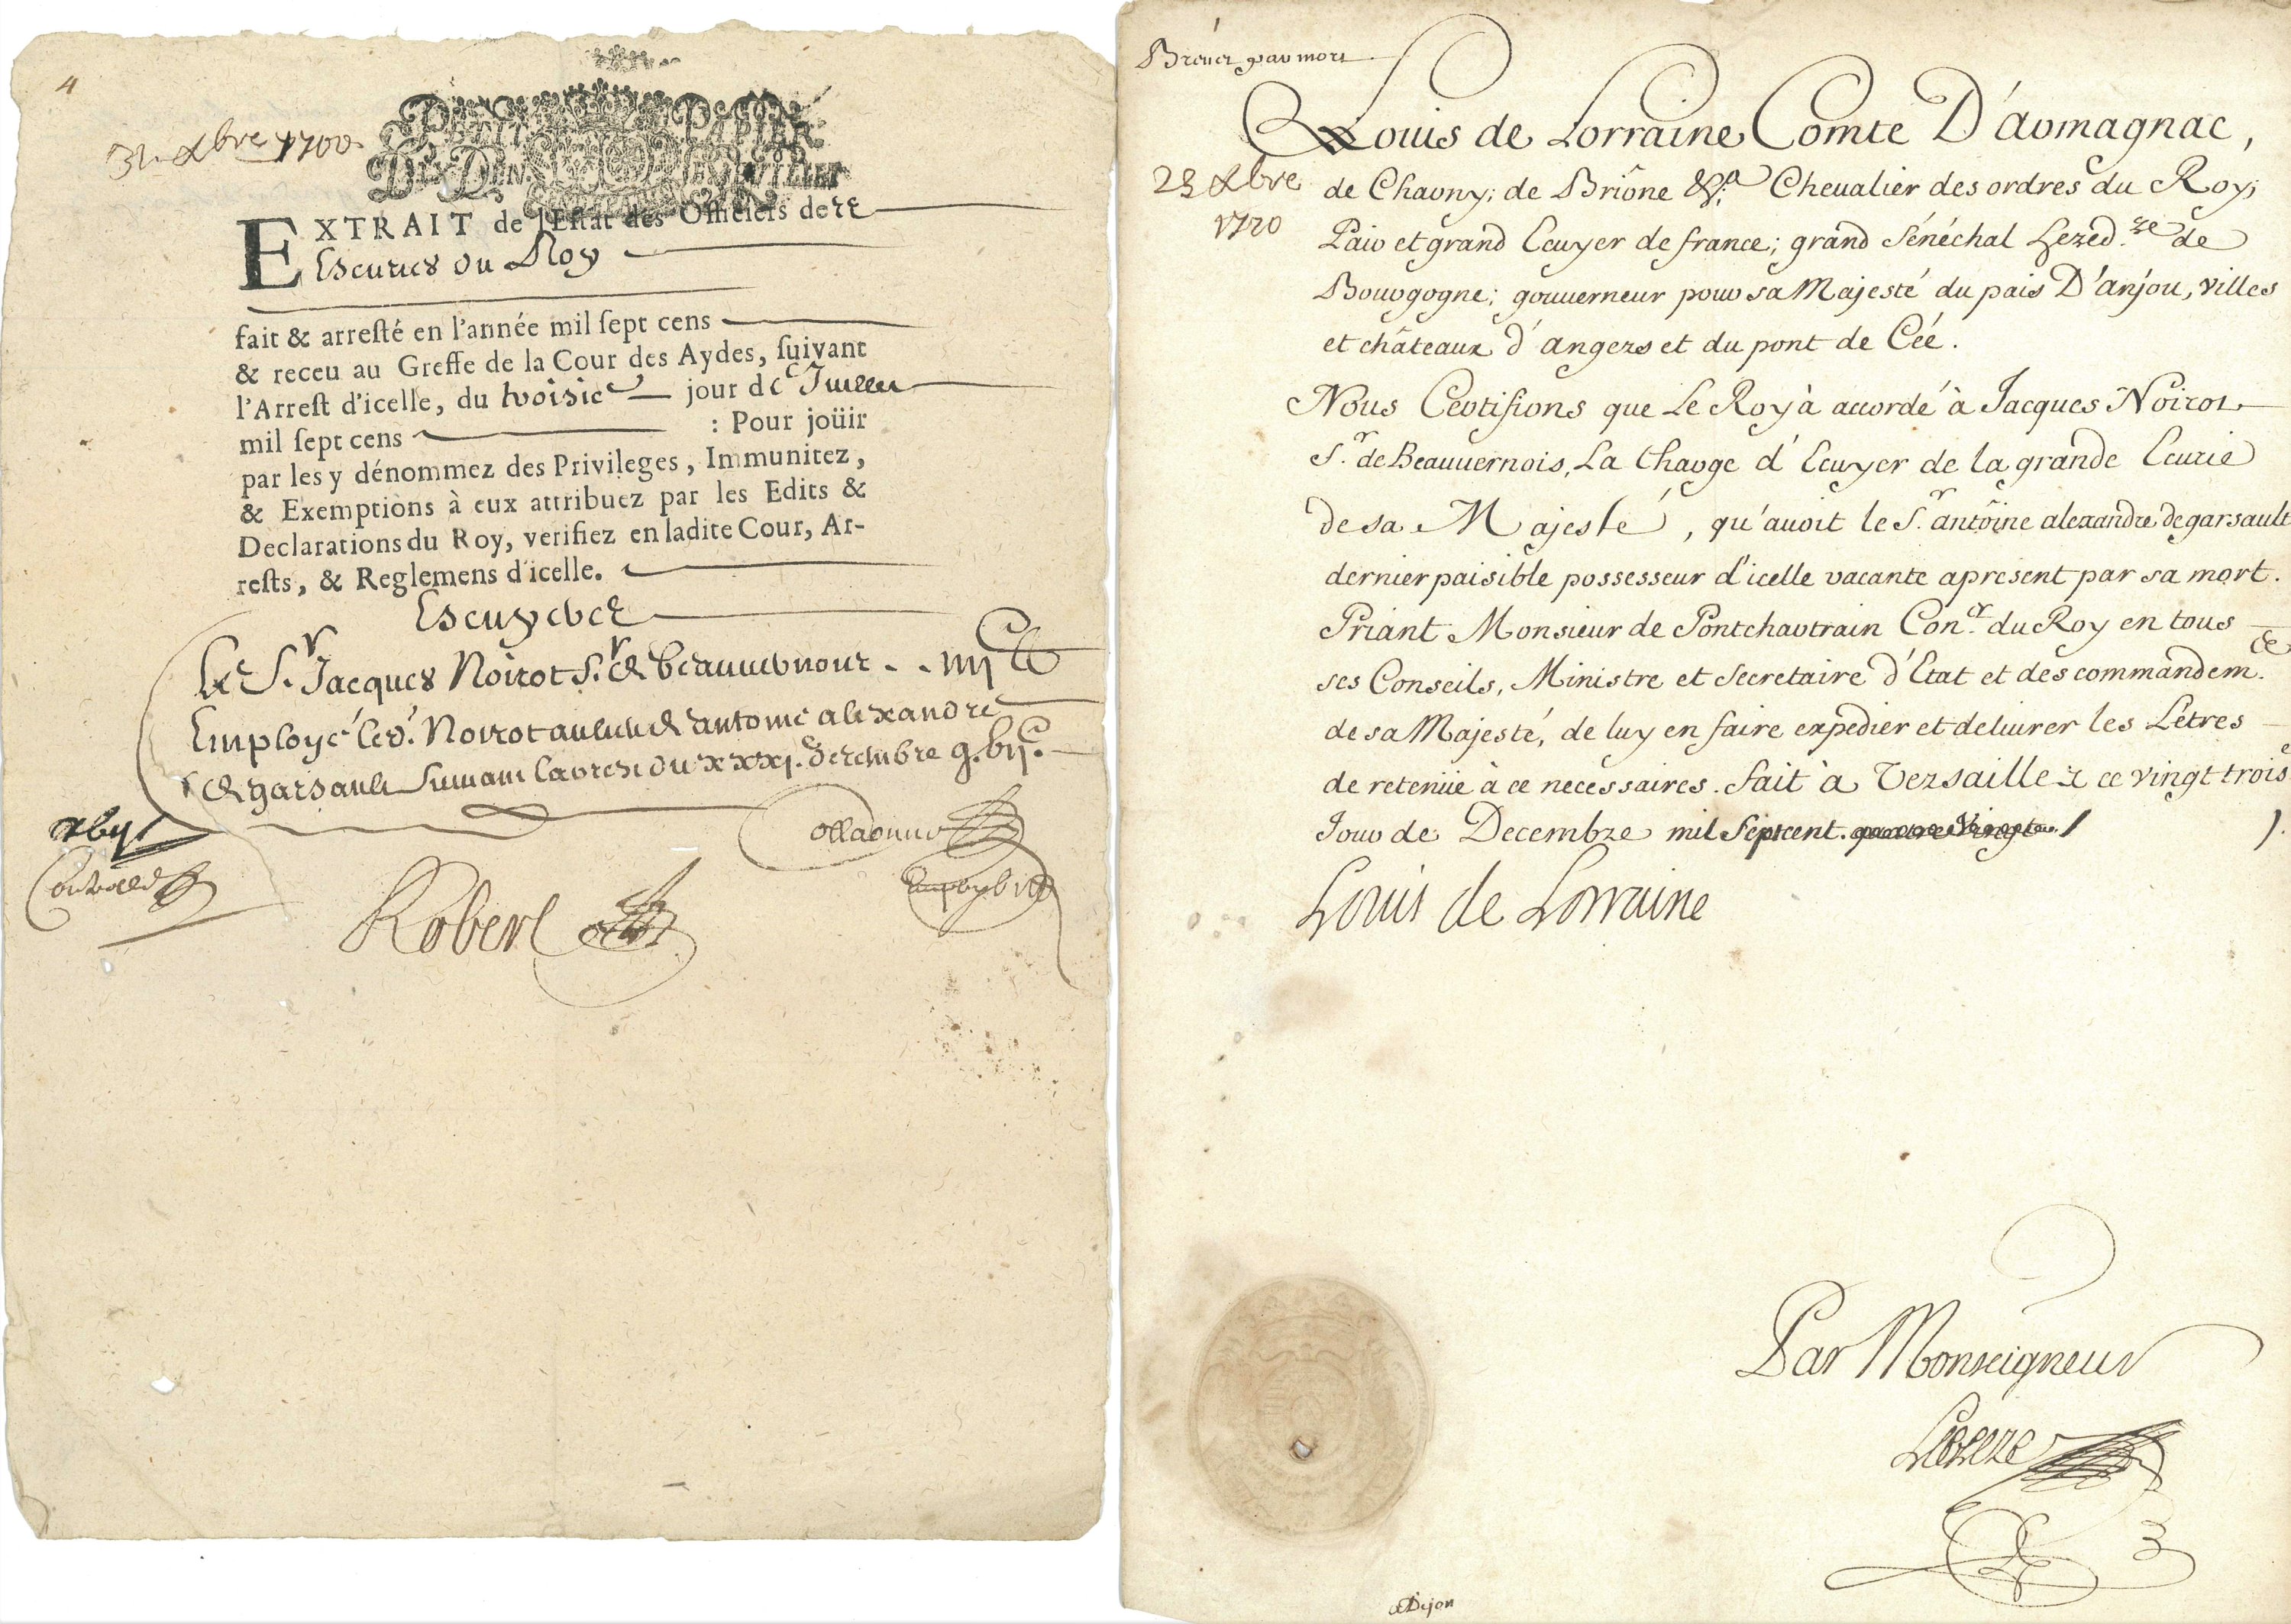 4
31 xbre 1700
PETIT PAPIER
DIX DEN.
EXTRAIT de l'Estat des Officiers de
Escuries du Roy
fait & arresté en l'année mil sept cens
& receu au Greffe de la Cour des Aydes, suivant
l'Arrest d'icelle, du troisie jour de Juillet
mil sept cens : Pour joüir
par les y dénommez des Privileges, Immunitez,
& Exemptions à eux attribuez par les Edits &
Declarations du Roy, verifiez en ladite Cour, Ar-
rests, & Reglemens d'icelle.
Escuyers
Le Sr. Jacques Noirot Sr. de
Employé led. Noirot au lieu d'antoine alexandre
de garsault suivant du xxxj. decembre
Robert
Breuet par mort
Louis de Lorraine Comte D'armagnac,
23 xbre
1720
de Charny; de Briône &c.a Cheualier des ordres du Roy;
Pair et grand Ecuyer de france; grand Sénéchal hered.re de
Bourgogne; gouuerneur pour sa Majesté du pais D'anjou, villes
et châteaux d'angers et du pont de Cée.
Nous Certifions que Le Roy à accordé à Jacques Noirot
S.r de Beauuernois, La Charge d'Ecuyer de la grande Ecurie
de sa Majesté, qu'auoit le S.r antoine alexandre de garsault
dernier paisible possesseur d'icelle vacante apresent par sa mort.
Priant Monsieur de Pontchartrain Con.er du Roy en tous
ses Conseils, Ministre et Secretaire d'Etat et des commandem.
de sa Majesté, de luy en faire expedier et deliurer les Letres
de retenüe à ce necessaires. fait à Versailles ce vingt trois e
Jour de Decembre mil Septcent.
Louis de Lorraine
Par Monseigneur
a Dijon